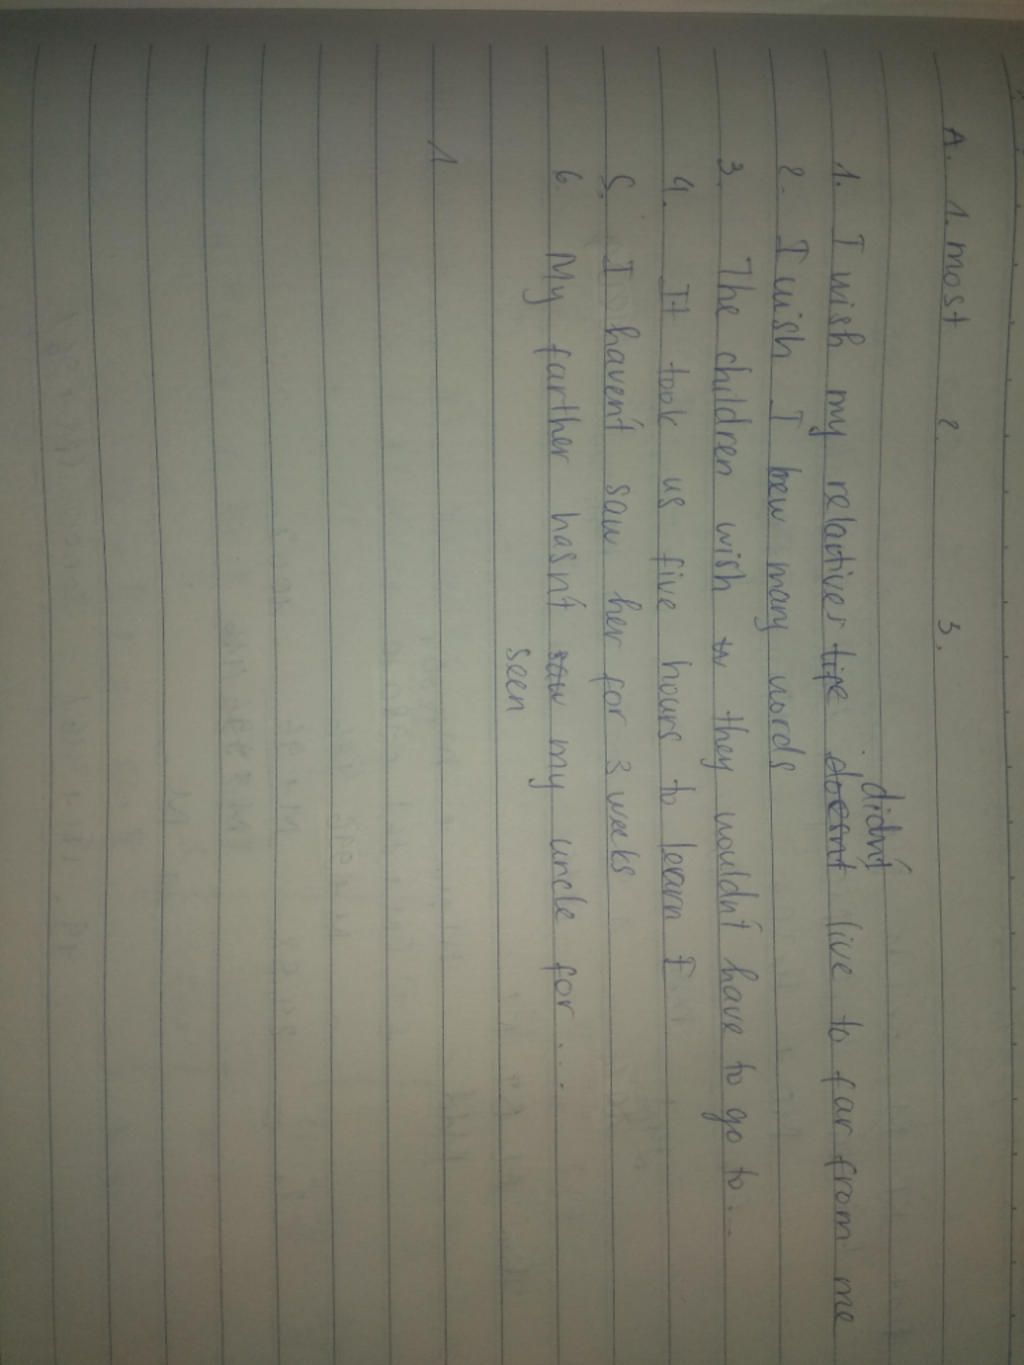 A. 1. most 2. 3.
didn't
1. I wish my relatives life doesnt live to far from me
2. I wish I knew many words
3. The children wish they wouldn't have to go to...
4. It took us five hours to learn E
5. I haven't saw her for 3 weeks
6. My farther hasn't saw my uncle for....
seen
1